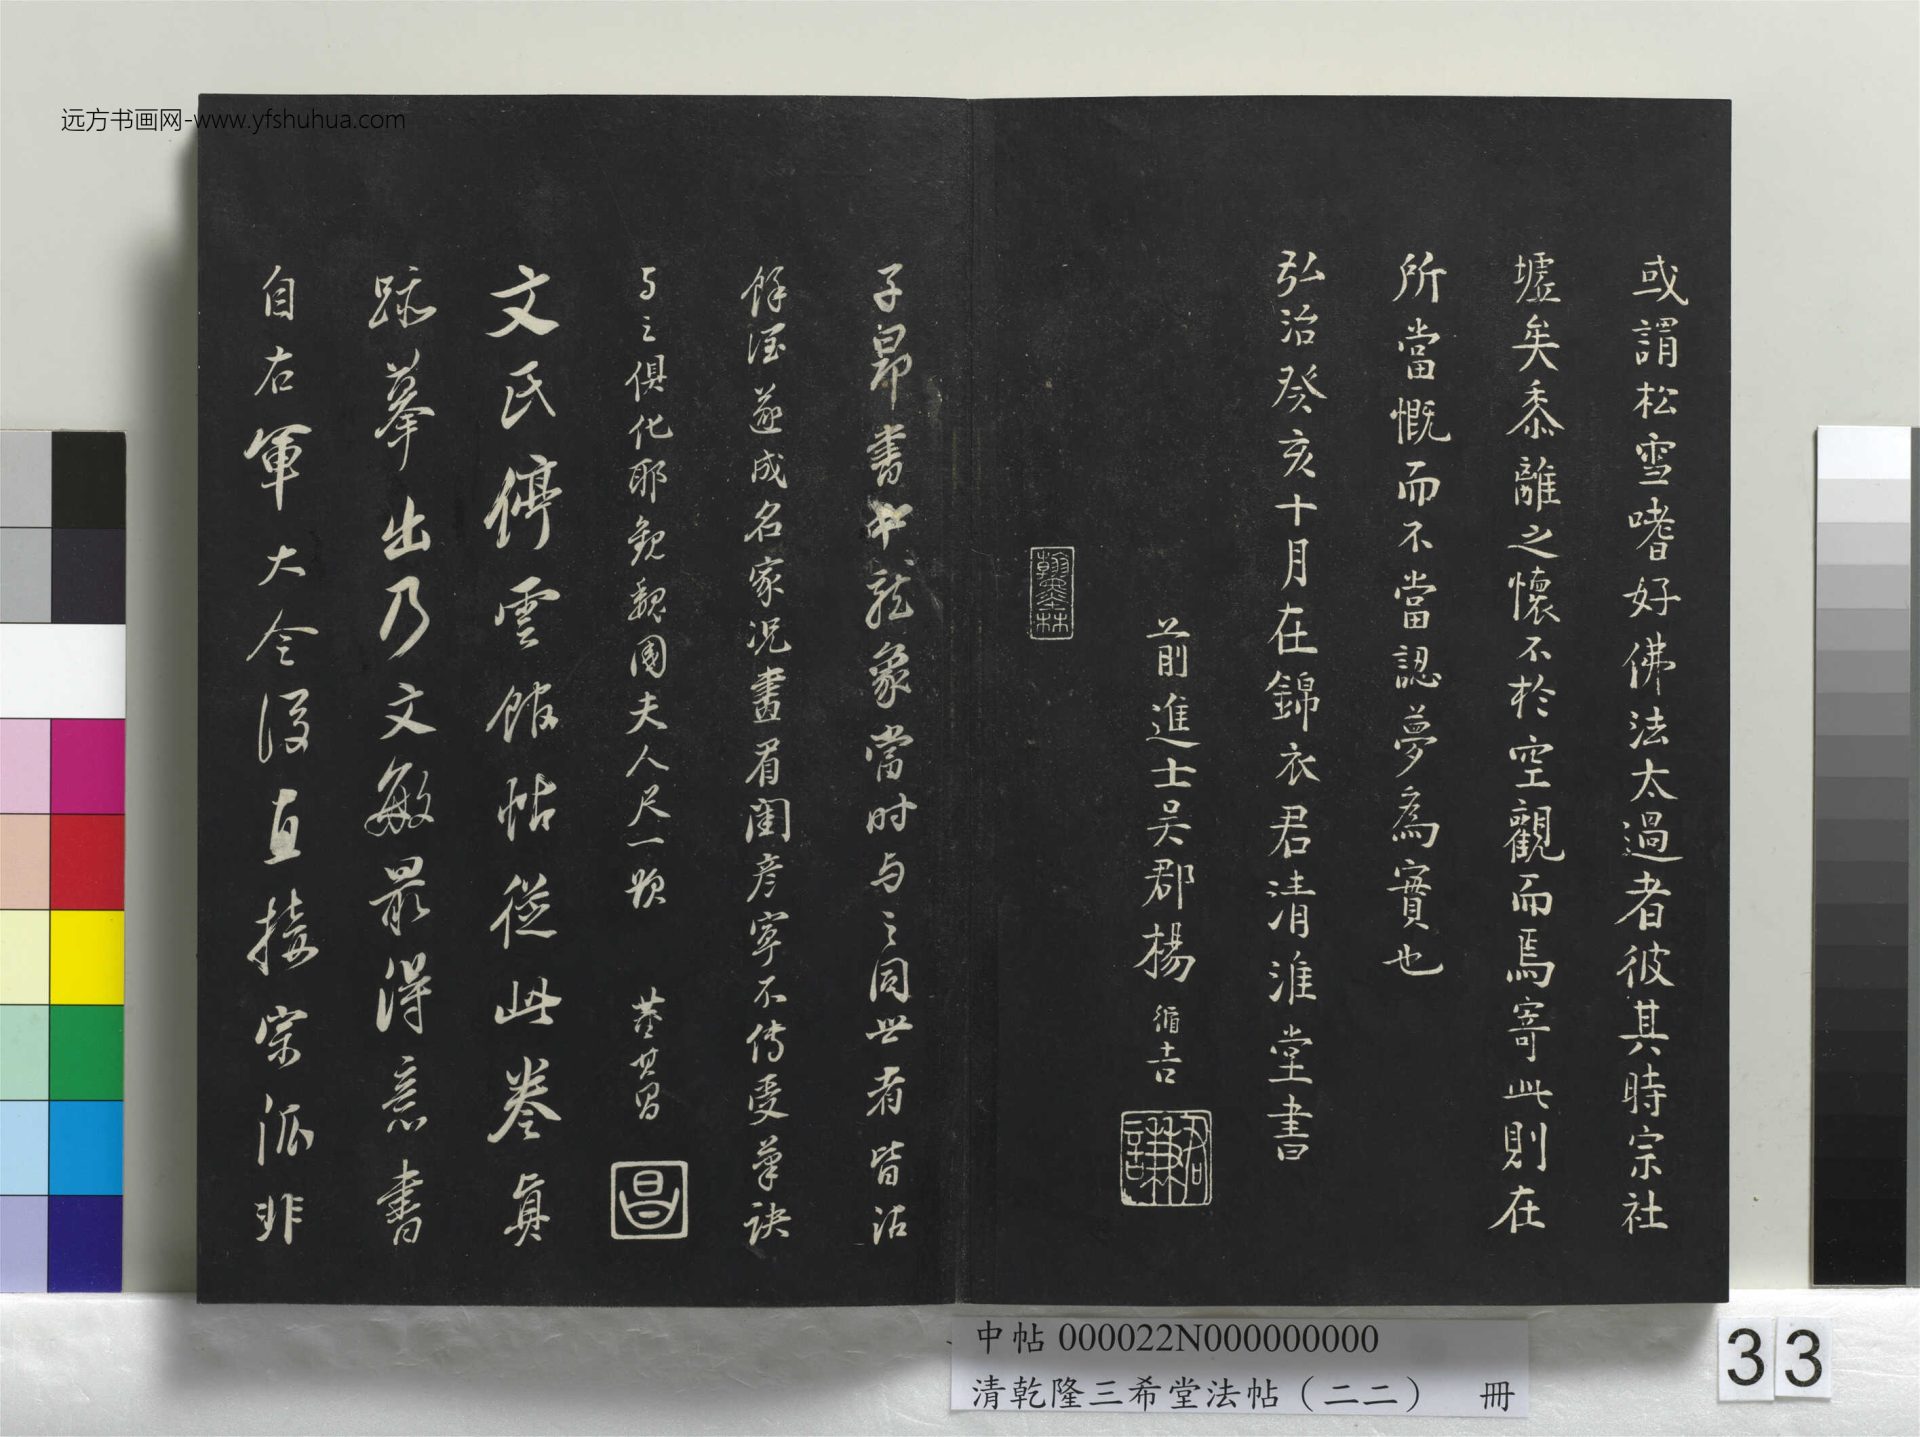 远方书画网-www.yfshuhua.com
或謂松雪嗜好佛法太過者彼其時宗社
墟矣黍離之懷不於空觀而焉寄此則在
所當慨而不當認夢為實也
弘治癸亥十月在錦衣君清淮堂書
前進士吳郡楊循吉
君謙
翰墨林
子昂書中龍象當时与之同世者皆沾
餘瀝遂成名家況畫眉閨彦寧不传受筆訣
与之俱化耶觀魏國夫人尺一題 董其昌
昌
文氏停雲館帖從此卷真
跡摹出乃文敏最得意書
自右軍大令後直接宗派非
中帖 000022N000000000
清乾隆三希堂法帖（二二） 冊
33